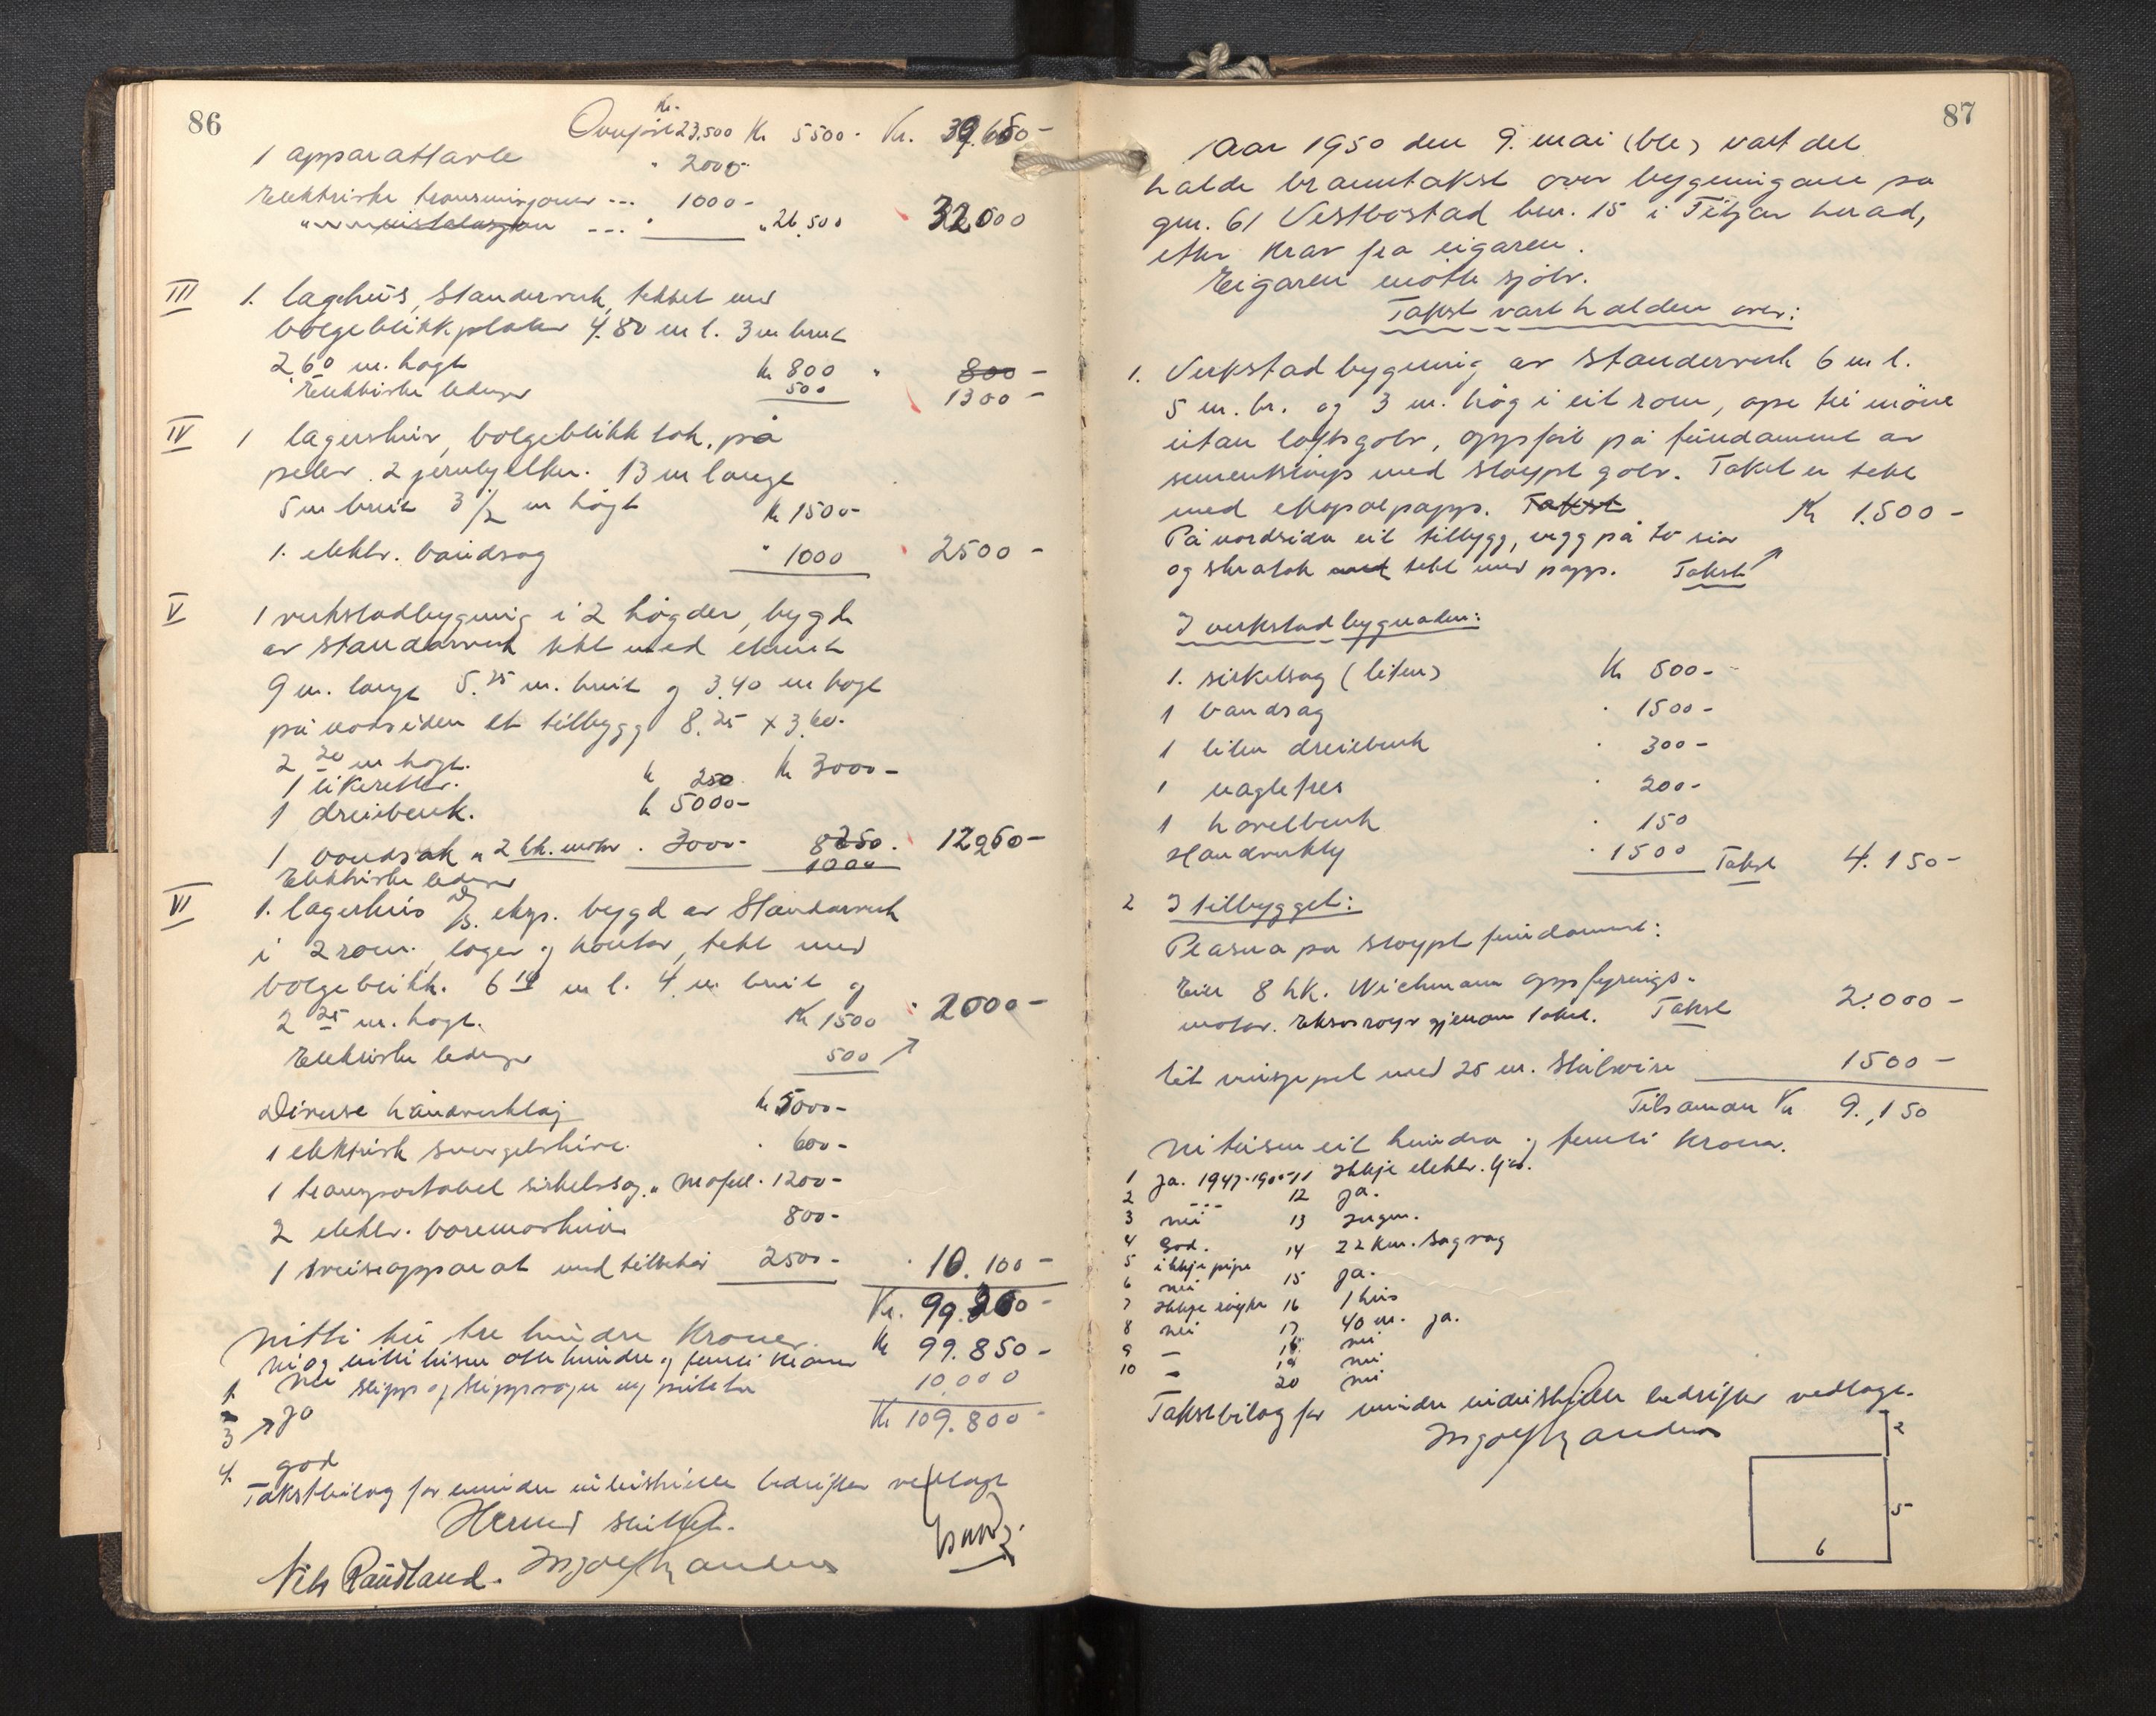 86
Kr.
Overført 23.500 Kr 5500- Kr. 39.650-
1 apparattavle " 2000-
Elektriske transmisjoner --- 1000-
" installasjon --- " 26.500 32000
III 1. lagehus, standerverk, tekket med
bølgeblikkplater 4.80 m l. 3 m breit
2.60 m. høgt Kr 800 " 800-
Elektriske ledninger 500 1300-
IV 1 lagerskur, bølgeblikk tak, på
peler. 2 jernbjelker. 13 m lange
5 m breit 3 1/2 m høgt Kr 1500-
1. elektr. bandsag " 1000 2500-
V 1 verkstadbygning i 2 høgder, bygd
av standarverk tekt med eternit
9 m. lange 5.25 m. breit og 3.40 m høgt
på nordsiden et tilbygg 8.25 x 3.60-
2 20 m høgt. Kr 3000-
1 likeretter. k 250
1 dreiebenk. k 5000-
1 bandsak m 2 hk. motor . 3000- 8250. 12250-
Elektriske ledninger 1000
VI 1. lagerhus eksp. bygd av Standarverk
i 2 rom. lager og kontor, tekt med
bølgeblikk. 6 10 m l. 4 m breit og
2 25 m. høgt. Kr 1500 " 2000-
Elektriske ledninger 500
Diverse håndverktøj Kr 5000-
1 elektrisk smergelskive. . 600-
1 transportabel sirkelsag " Mafell . 1200-
2 elektr. boremaskiner 800-
1 sveiseapparat med tilbehør 2500- . 10.100-
Kr. 99.300-
Nitti ni tre hundre Kroner. Kr 99.850-
Ni og nitti tusen otte hundre og femti kroner
1. nei slipp og slippvogn og 10.000
2
3 ja Kr 109.800-
4. god
Takstbilag for mindre industrielle bedrifter vedlagt
Nils Rautland.
87
Aar 1950 den 9. mai (ble) vart det
halde branntakst over bygningane på
gnr. 61 Vestbøstad bnr. 15 i Fitjar herad,
etter krav fra eigaren.
Eigaren møtte sjølv.
Takst vart halden over:
1. Verkstadbygning av standerverk 6 m l.
5 m. br. og 3 m. høg i eit rom, ope til møne
utan loftsgolv, oppført på fundament av
sementstøyp med støypt golv. Taket er tekt
med papp. Takst Kr 1.500-
På nordsida eit tilbygg, vegg på to sior
og skratak med tekt med papp. Takst
I verkstadbygnaden:
1. sirkelsag (liten) Kr 500-
1 bandsag . 1500-
1 liten dreiebenk . 300-
1 naglefres . 200-
1 høvelbenk . 150
Handverkty . 1500 Takst 4.150-
2 I tilbygget:
Plasera på støypt fundament:
Ein 8 hk. Wichmann oppfyrings-
motor. Eksosrøyr gjenom taket. Takst 2.000-
Eit vinsjespel med 25 m. Stålwire 1500-
Tilsaman Kr 9.150
Nitusen eit hundre og femti kroner.
1 Ja. 1947-1950 11 Ikkje elektr. ljos.
2 --- 12 ja.
3 nei 13 Ingen.
4 God. 14 22 km. Sagvåg
5 ikkje pipe 15 ja.
6 nei
7 Ikkje røykr 16 1 hus
8 nei 17 40 m. ja.
9 - 18 nei
10 - 19 nei
20 nei
Takstbilag for mindre industrielle bedrifter vedlagt.
2
5
6